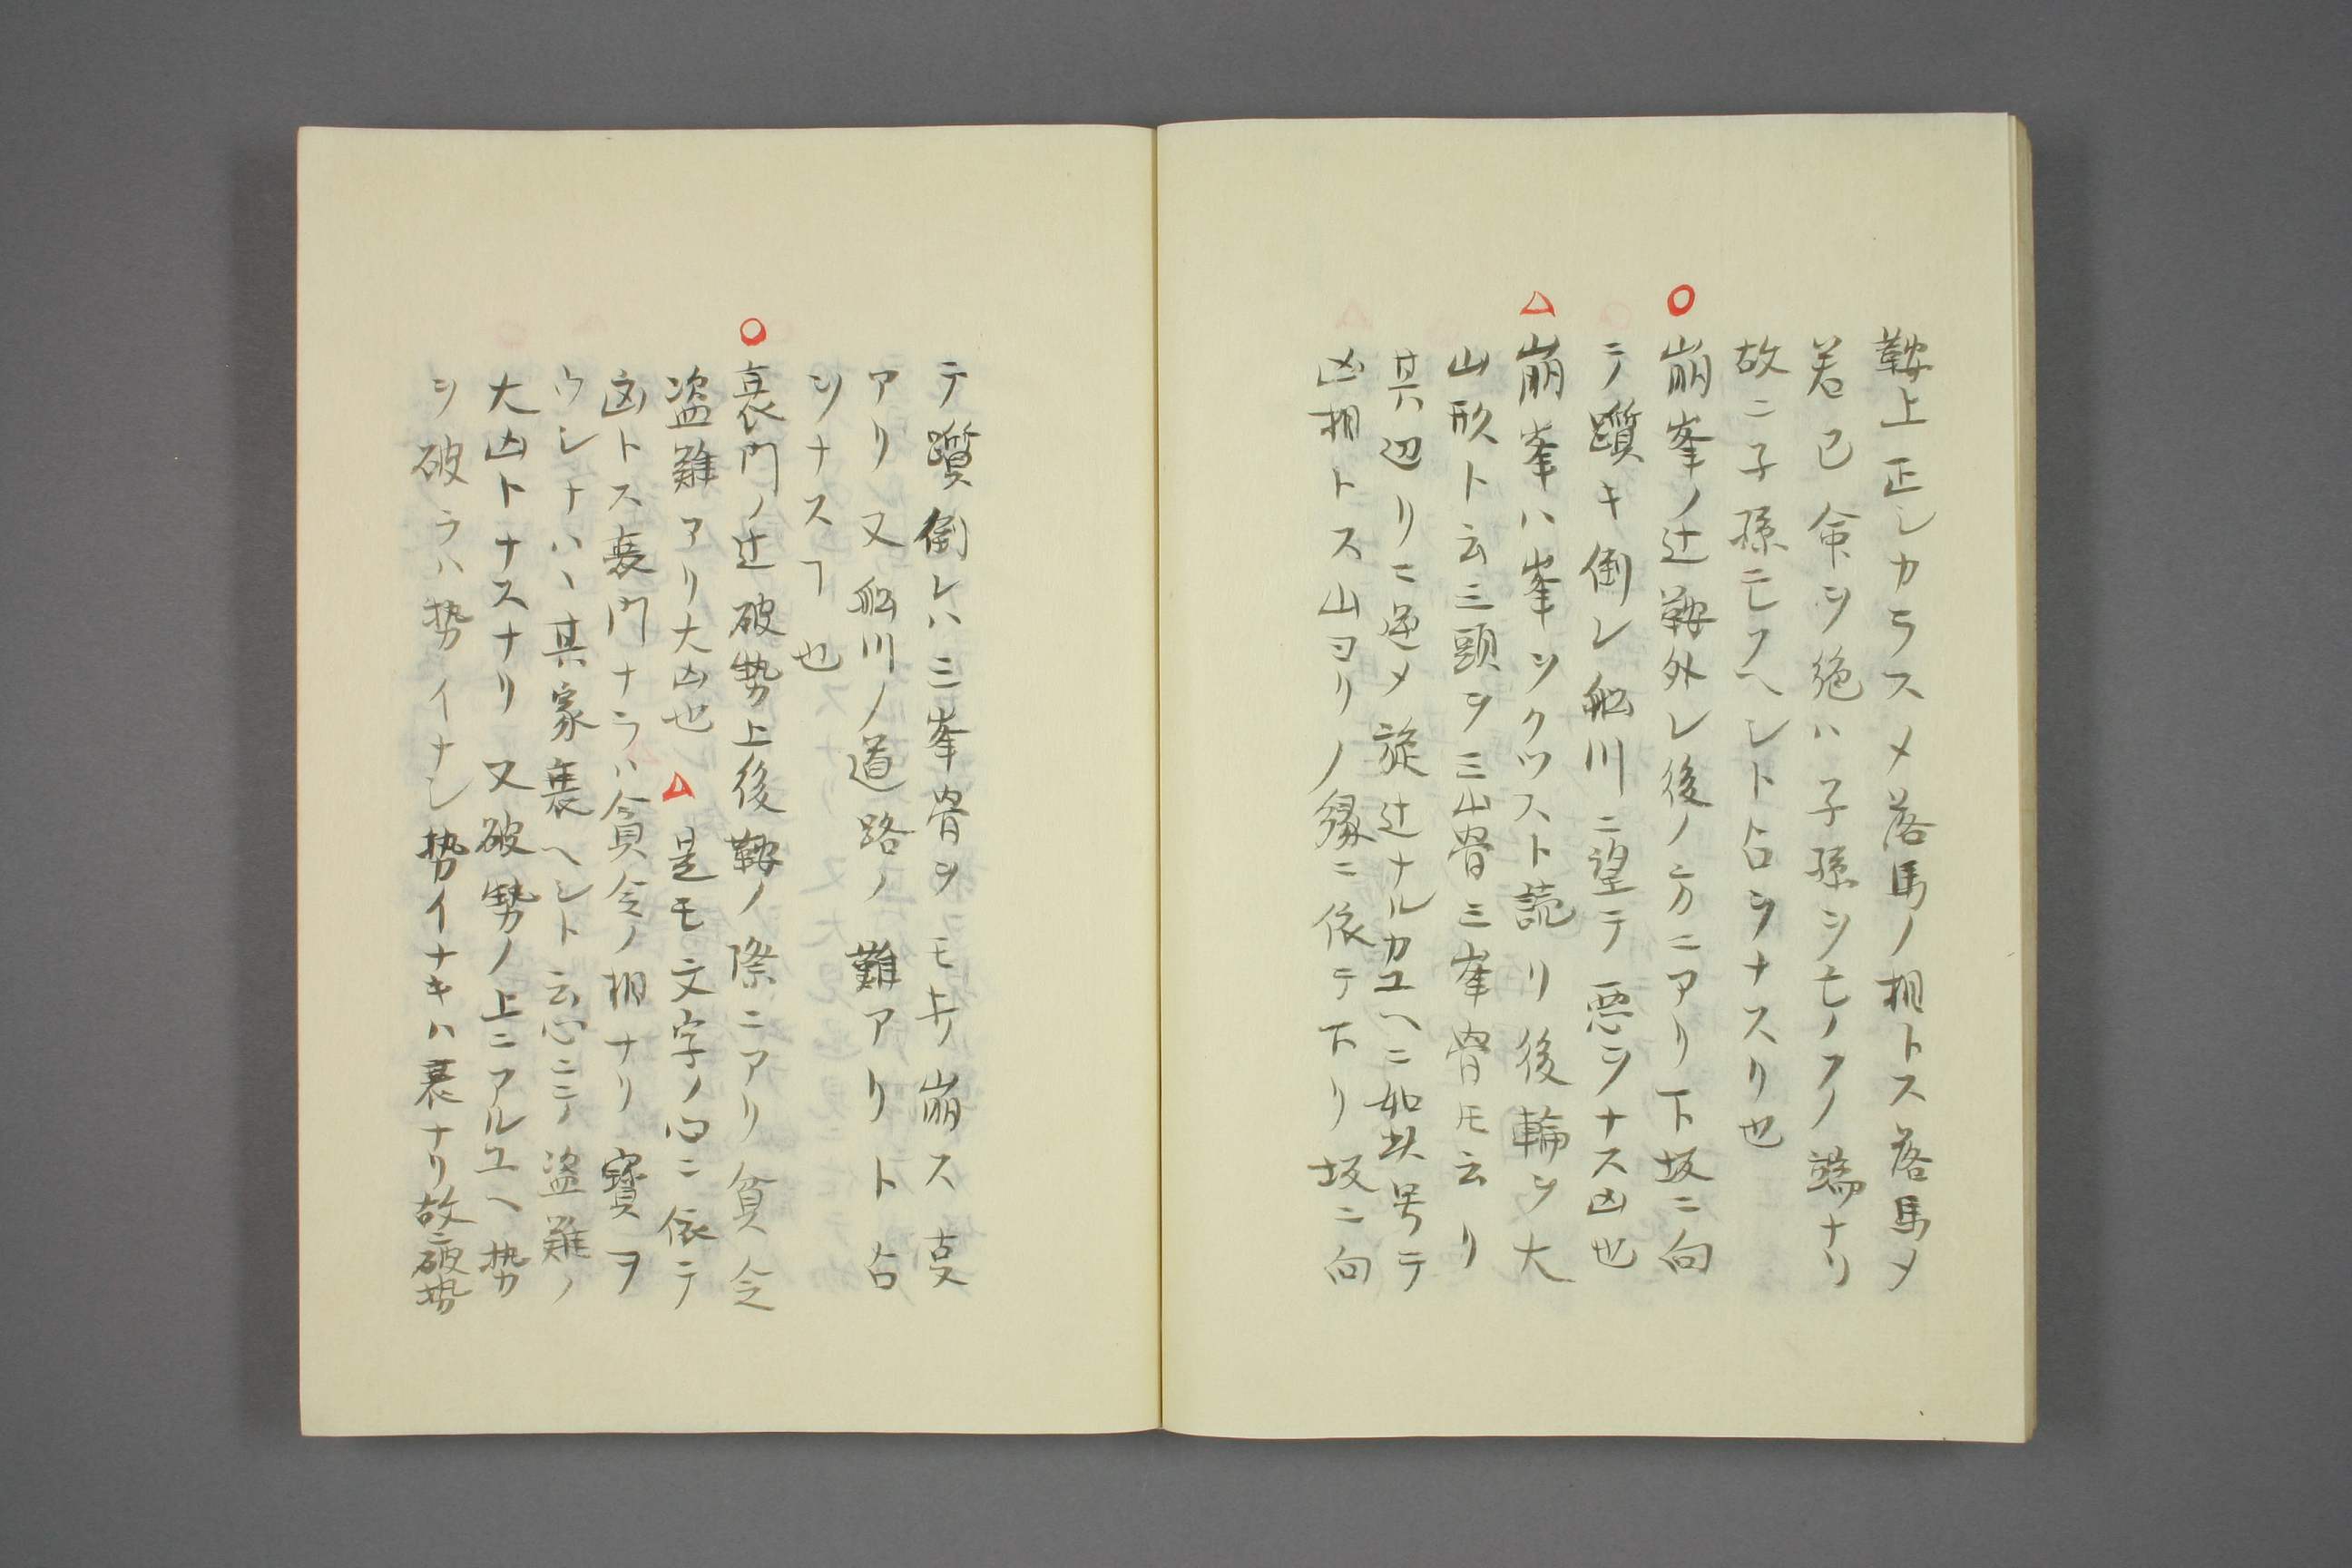 鞍上正シカラスメ落馬ノ相トス落馬メ
若已命ヲ絶ハ子孫ヲモノフノ端ナリ
故ニ子孫モフヘシト占ヲナスリ也
○崩峯ノ辻鞍外レ後ノ方ニアリ下坂ニ向
テ躓キ倒レ船川ニ望テ悪ヲナス凶也
△崩峯ハ峯ヲクツスト読リ後輪ヲ大
山形ト云三頭ヲ三山骨三峯骨モ云リ
其辺リニ逆メ旋辻ナルカユヘニ如此号テ
凶相トス山ヨリノ縁ニ依テ下リ坂ニ向
テ躓倒レハ三峯骨ヲモ崩ス
アリ又船川ノ道路ノ難アリト占
ヲナスヿ也
○衰門ノ辻破勢上後鞍ノ際ニアリ貧念
盗難アリ大凶也△是モ文字ノ心ニ依テ
凶トス衰門ナラハ貪念ノ相ナリ寳ヲ
ウシナハヽ其家衰ヘシト云心ニテ盗難ノ
大凶トナスナリ又破勢ノ上ニアルユヘ勢
ヲ破ラハ勢イナシ勢イナキハ衰ナリ故ニ破勢